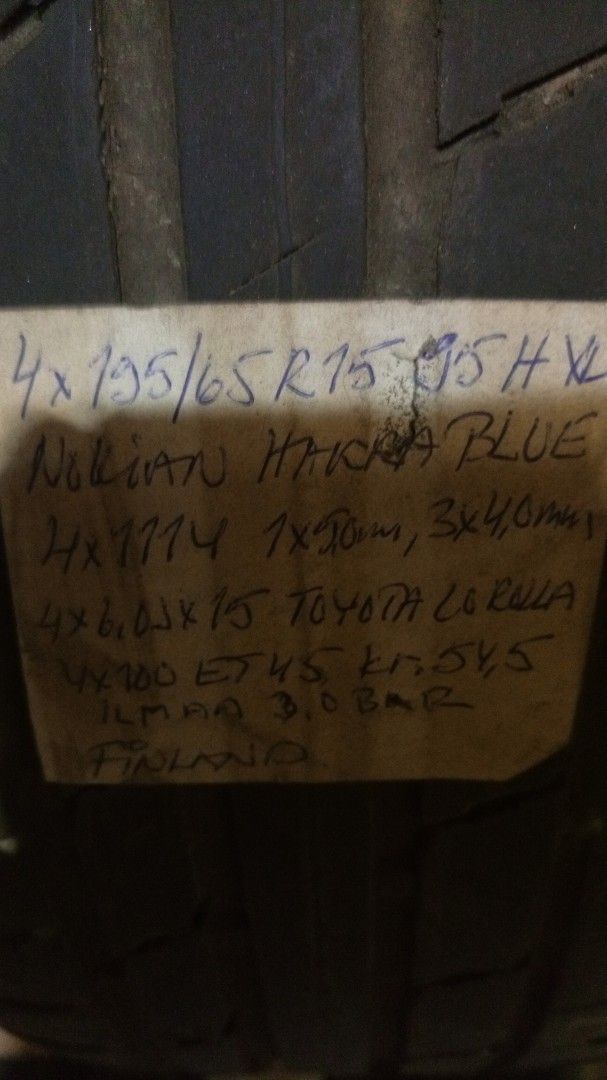 4x195/65 R15 95H XL
NOKIAN HAKKA BLUE
4x1114 1x5,0mm, 3x4,0mm,
4x6,0Jx15 TOYOTA COROLLA
4x100 ET45 kr. 54,5
ILMAA 3.0 BAR
FINLAND